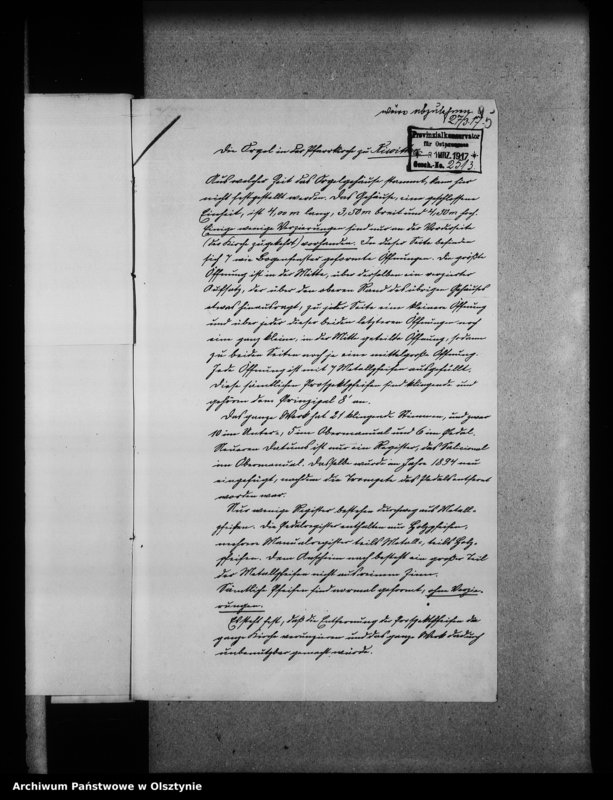 wäre abzulehnen
27/3 17
Provinzialkonservator
für Ostpreussen
MRZ. 1917
Gesch.-No. 2513
Die Orgel in der Pfarrkirche zu Kiwitten
Aus welcher Zeit das Orgelgehäuse stammt, kann hier
nicht festgestellt werden. Das Gehäuse, eine geschlossene
Einheit, ist 4,00 m lang, 3,50 m breit und 4,50 m hoch.
Einige wenige Verzierungen sind nur an der Vorderseite
(der Kirche zugekehrt) vorhanden. In dieser Seite befinden
sich 7 wie Bogenfenster geformte Öffnungen. Die größte
Öffnung ist in der Mitte, über derselben ein verzierter
Aufsatz, der über den oberen Rand des übrigen Gehäuses
etwas hinausragt, zu jeder Seite eine kleinere Öffnung
und über jeder dieser beiden letzteren Öffnungen noch
eine ganz kleine, in der Mitte geteilte Öffnung, sodann
zu beiden Seiten noch je eine mittelgroße Öffnung.
Jede Öffnung ist mit 7 Metallpfeifen ausgefüllt.
Diese sämtlichen Prospektpfeifen sind klingende und
gehören dem Prinzipal 8' an.
Das ganze Werk hat 21 klingende Stimmen, und zwar
10 im Unter-, 5 im Obermanual und 6 im Pedal.
Neueren Datums ist nur ein Register, das Salicional
im Obermanual. Dasselbe wurde im Jahre 1894 neu
eingefügt, nachdem die Trompete des Pedals entfernt
worden war.
Nur wenige Register bestehen durchweg aus Metall-
pfeifen. Die Pedalregister enthalten nur Holzpfeifen,
mehrere Manualregister teils Metall-, teils Holz-
pfeifen. Dem Anschein nach besteht ein großer Teil
der Metallpfeifen nicht aus reinem Zinn.
Sämtliche Pfeifen sind normal geformt, ohne Verzie-
rungen.
Es steht fest, daß die Entfernung der Prospektpfeifen die
ganze Kirche verunzieren und das ganze Werk dadurch
unbenutzbar gemacht würde.
Archiwum Państwowe w Olsztynie